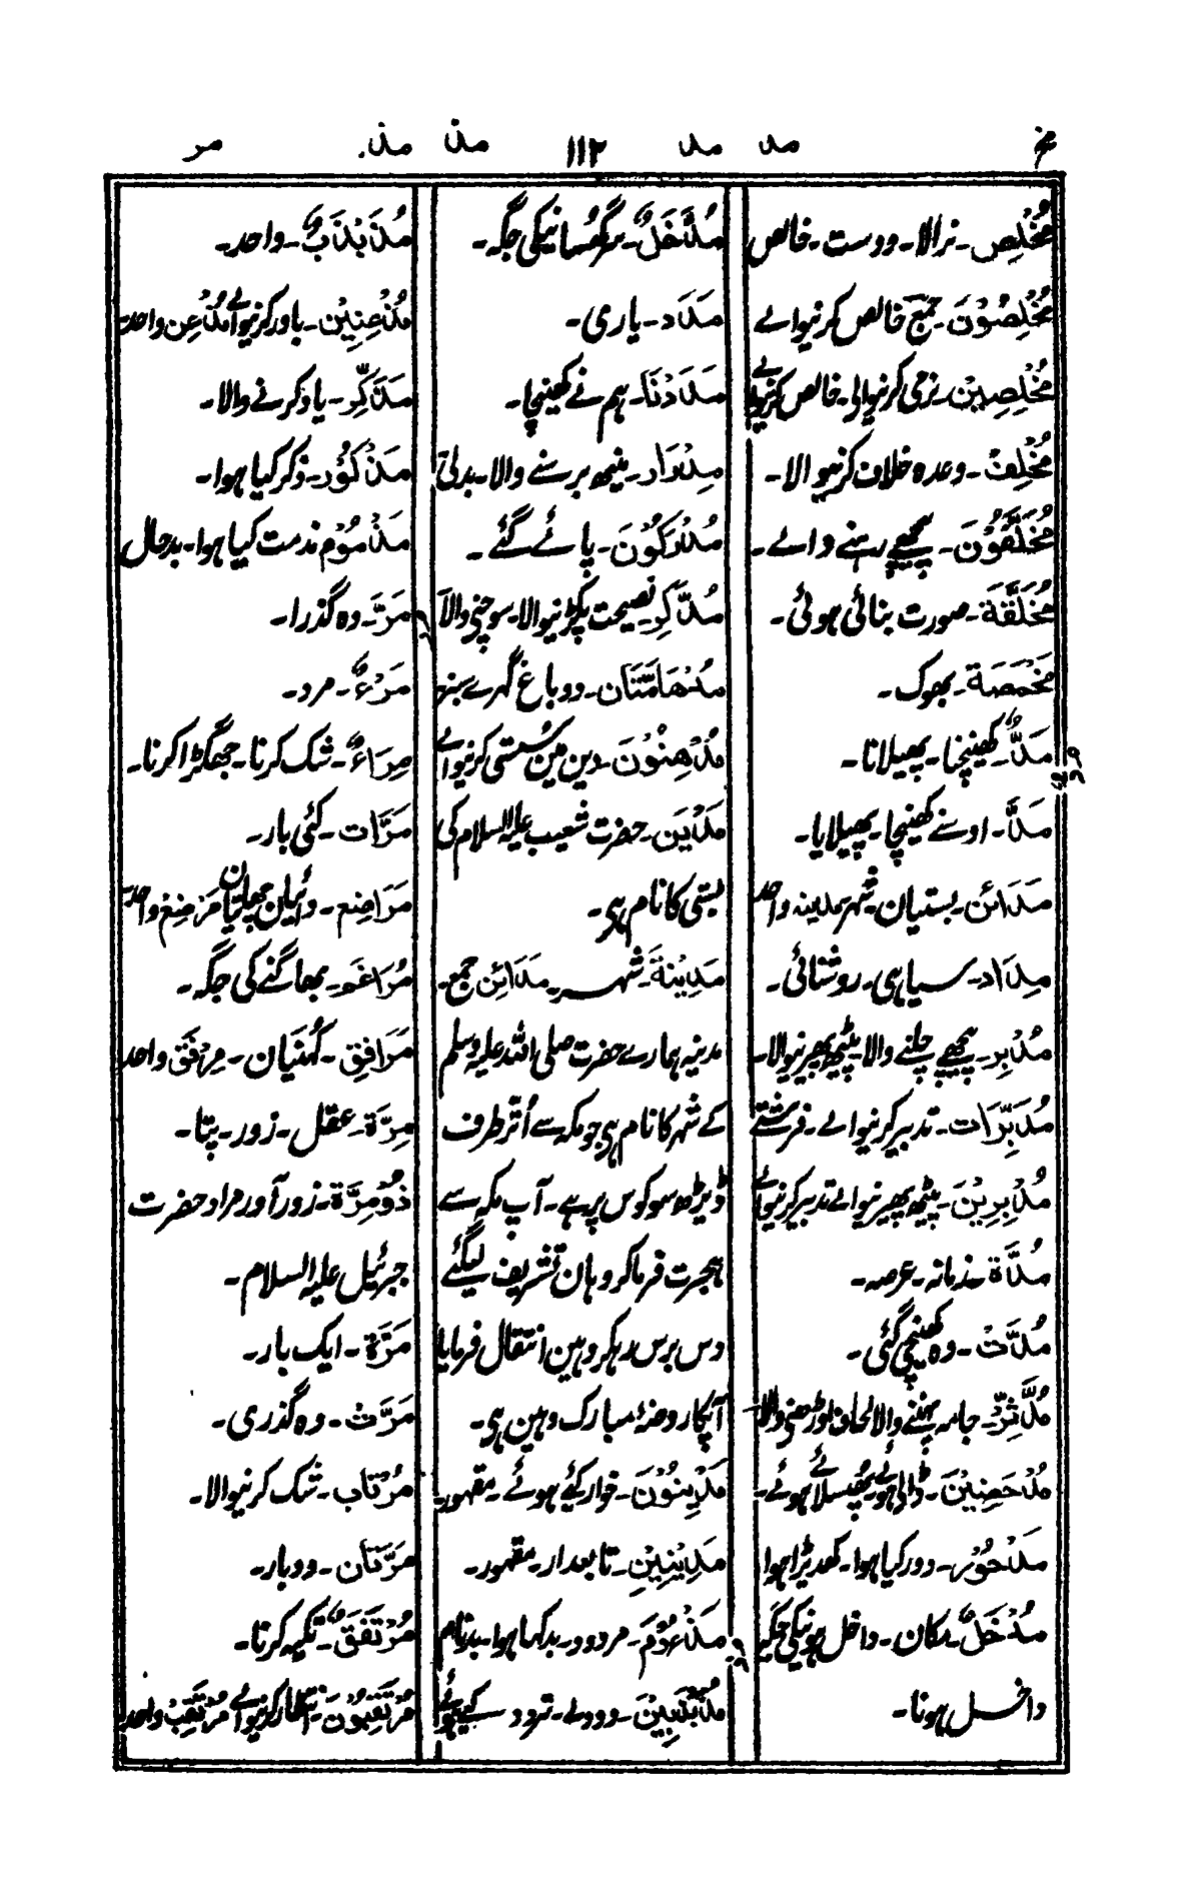 مخ مد مد ۱۱۲ مذ مذ مر
مُخْلِص۔ نرالا۔ دوست۔ خالص
مُخْلِصُوْنَ۔ جمع خالص کرنیوالے
مُخْلِصِیْن۔ نرمی کرنیوالی۔ خالص کرنیوالے
مُخْلِفَ۔ وعدہ خلاف کرنیوالا۔
مُخَلَّفُوْنَ۔ پیچھے رہنے والے۔
مُخَلَّقَة۔ صورت بنائی ہوئی۔
مَخْمَصَة۔ بھوک۔
مَدٌّ۔ کھینچنا۔ پھیلانا۔
مَدَّ۔ اوسنے کھینچا۔ پھیلایا۔
مَدَائن۔ بستیان۔ شہر۔ مدینہ واحد
مِدَاد۔ سیاہی۔ روشنائی۔
مُدْبِر۔ پیچھے چلنے والا۔ پیٹھ پھیرنیوالا۔
مُدَبِّرَات۔ تدبیر کرنیوالے۔ فرشتے
مُدْبِرِیْنَ۔ پیٹھ پھیرنیوالے تدبیر کرنیوالے
مُدَّة۔ زمانہ۔ عرصہ۔
مُدَّتْ۔ وہ کھینچی گئی۔
مُدَّثِّر۔ جامہ پہننے والا لحاف اوڑھنے والا
مُدْحَضِیْنَ۔ ڈالے ہوئے پھسلائے ہوئے۔
مَدْحُوْر۔ دور کیا ہوا۔ کھدیڑا ہوا
مُدْخَلٌ۔ مکان۔ داخل ہونیکی جگہ
داخل ہونا۔
مُدَّخَلٌ۔ سرگھسانیکی جگہ۔
مَدَد۔ یاری۔
مَدَدْنَا۔ ہم نے کھینچا۔
مِدْرَار۔ مینھ برسنے والا۔ بدلی
مُدْرَکُوْنَ۔ پائے گئے۔
مُدَّکِر۔ نصیحت پکڑنیوالا۔ سوچنے والا
مُدْهَامَّتَان۔ دو باغ گہرے سبز
مُدْهِنُوْنَ۔ دین مین سستی کرنیوالے
مَدْیَن۔ حضرت شعیب علیہ السلام کی
بستی کا نام ہی۔
مَدِیْنَة۔ شہر۔ مَدَائِن جمع۔
مدینہ ہمارے حضرت صلی اللہ علیہ وسلم
کے شہر کا نام ہی جو مکہ سے اُتر طرف
ڈیڑھ سو کوس پر ہے۔ آپ مکہ سے
ہجرت فرماکر وہان تشریف لیگئے
دس برس رہکر وہین انتقال فرمایا
آپکا روضۂ مبارک وہین ہی۔
مَدِیْنُوْنَ۔ خوار کئے ہوئے۔ مقہور۔
مَدِیْنِیْنِ۔ تابعدار۔ مقہور۔
مَذْءُوْمَ۔ مردود۔ بد کہا ہوا۔ بدنام
مُذَبْذَبِیْنَ۔ دودلے۔ تردد کیے ہوئے
مُذَبْذَبٌ۔ واحد۔
مُذْعِنِیْن۔ باور کرنیوالے مُذْعِن واحد
مَذَكِّر۔ یاد کرنے والا۔
مَذْکُوْر۔ ذکر کیا ہوا۔
مَذْمُوْم مذمت کیا ہوا۔ بدحال
مَرَّ۔ وہ گذرا۔
مَرْءٌ۔ مرد۔
مِرَاءٌ۔ شک کرنا۔ جھگڑا کرنا۔
مَرَّات۔ کئی بار۔
مَرَاضِع۔ دائیان چھاتیان مَرْضِع واحد
مُرَاغَم۔ بھاگنے کی جگہ۔
مَرَافِق۔ کہنیان۔ مِرْفَق واحد
مِرَّة۔ عقل۔ زور۔ پتا۔
ذُوْ مِرَّة۔ زور آور مراد حضرت
جبرئیل علیہ السلام۔
مَرَّة۔ ایک بار۔
مَرَّتْ۔ وہ گذری۔
مُرْتَاب۔ شک کرنیوالا۔
مَرَّتَان۔ دوبار۔
مُرْتَفَقٌ۔ تکیہ کرنا۔
مُرْتَقِبُوْنَ۔ انتظار کرنیوالے مُرْتَقِبْ واحد